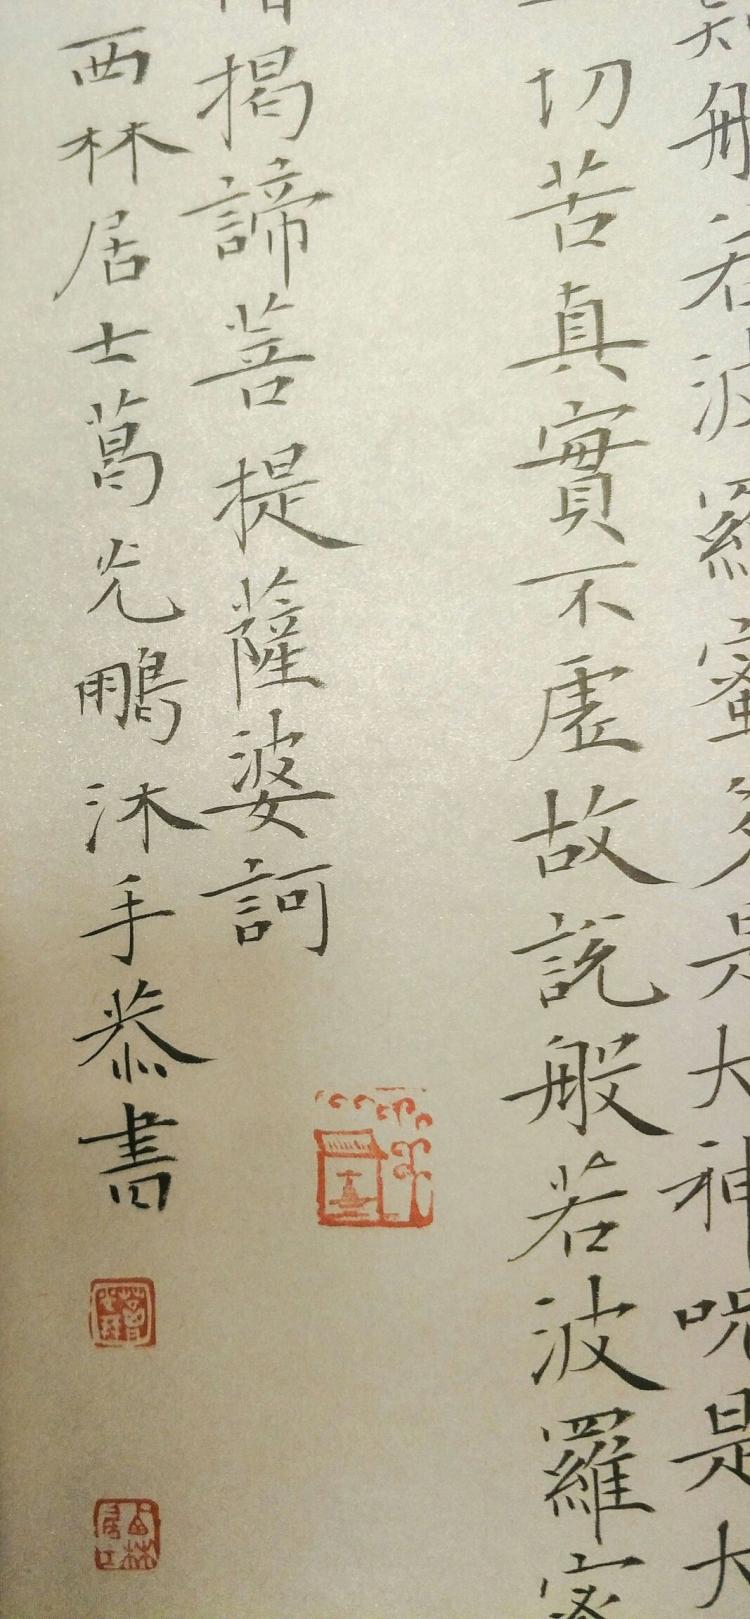 般若波羅蜜多是大神呪是大
切苦真實不虛故說般若波羅蜜
揭諦菩提薩婆訶
西林居士葛光鵬沐手恭書
西林居士